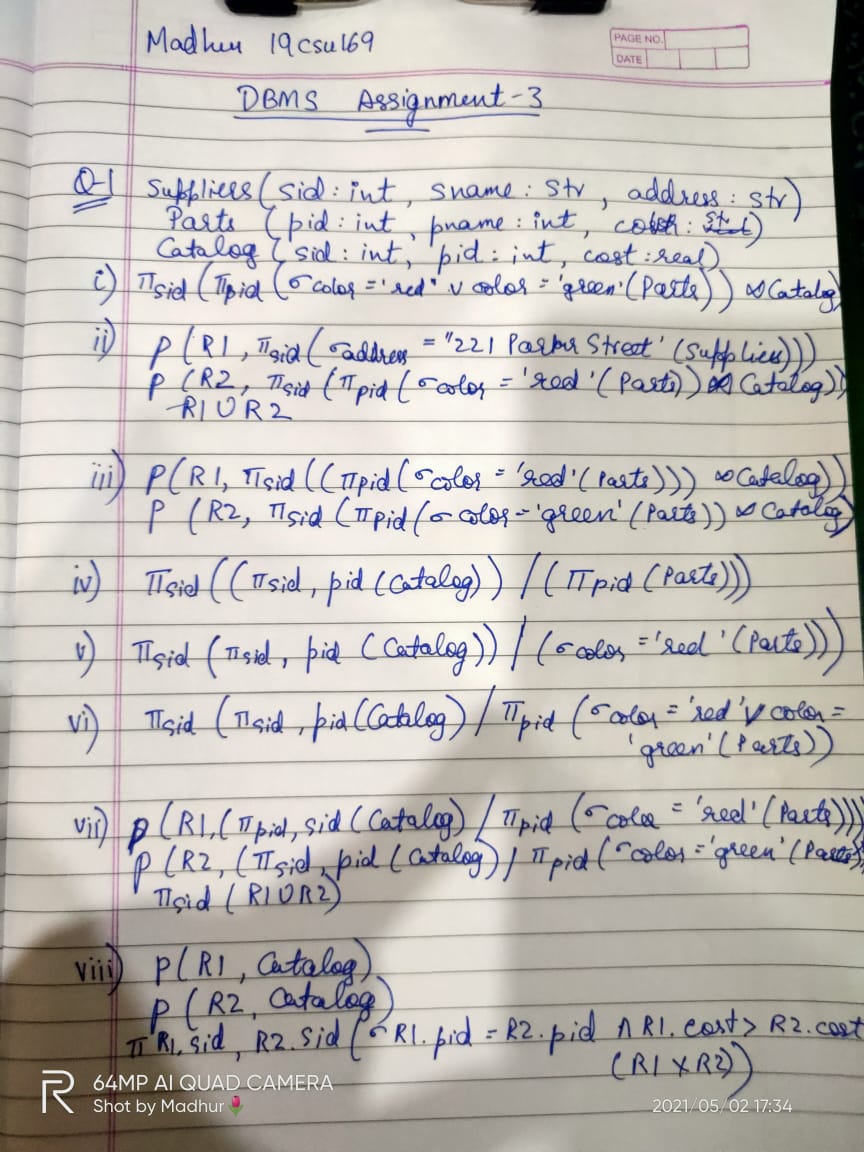 Madhur 19csu169
PAGE NO.
DATE
DBMS Assignment-3
Q-1 Suppliers (sid : int, sname : str, address : str)
Parts (pid : int, pname : int, color : str)
Catalog (sid : int, pid : int, cost : real)
i) πsid (πpid (σcolor = 'red' ∨ color = 'green' (Parts)) ⋈ Catalog)
ii) ρ (R1, πsid (σaddress = "221 Parker Street' (Suppliers)))
ρ (R2, πsid (πpid (σcolor = 'red' (Parts)) ⋈ Catalog))
R1 ∪ R2
iii) ρ(R1, πsid ((πpid (σcolor = 'red' (Parts))) ⋈ Catalog))
ρ (R2, πsid (πpid (σ color = 'green' (Parts)) ⋈ Catalog)
iv) πsid ((πsid, pid (Catalog)) / (πpid (Parts)))
v) πsid (πsid, pid (Catalog)) / (σcolor = 'red' (Parts)))
vi) πsid (πsid, pid (Catalog) / πpid (σcolor = 'red' ∨ color =
'green' (Parts))
vii) ρ (R1, (πpid, sid (Catalog) / πpid (σcolor = 'red' (Parts)))
ρ (R2, (πsid, pid (Catalog) / πpid (σcolor = 'green' (Parts))
πsid (R1 ∪ R2)
viii) ρ(R1, Catalog)
ρ (R2, Catalog)
π R1.sid, R2.sid (σ R1.pid = R2.pid ∧ R1.cost > R2.cost
(R1 × R2))
64MP AI QUAD CAMERA
Shot by Madhur🌷
2021/05/02 17:34